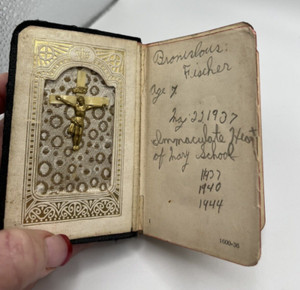 Bronislous:
Fischer
Age 7
My 22 1937
Immaculate Heart
of Mary School
1937
1940
1944
1600/36